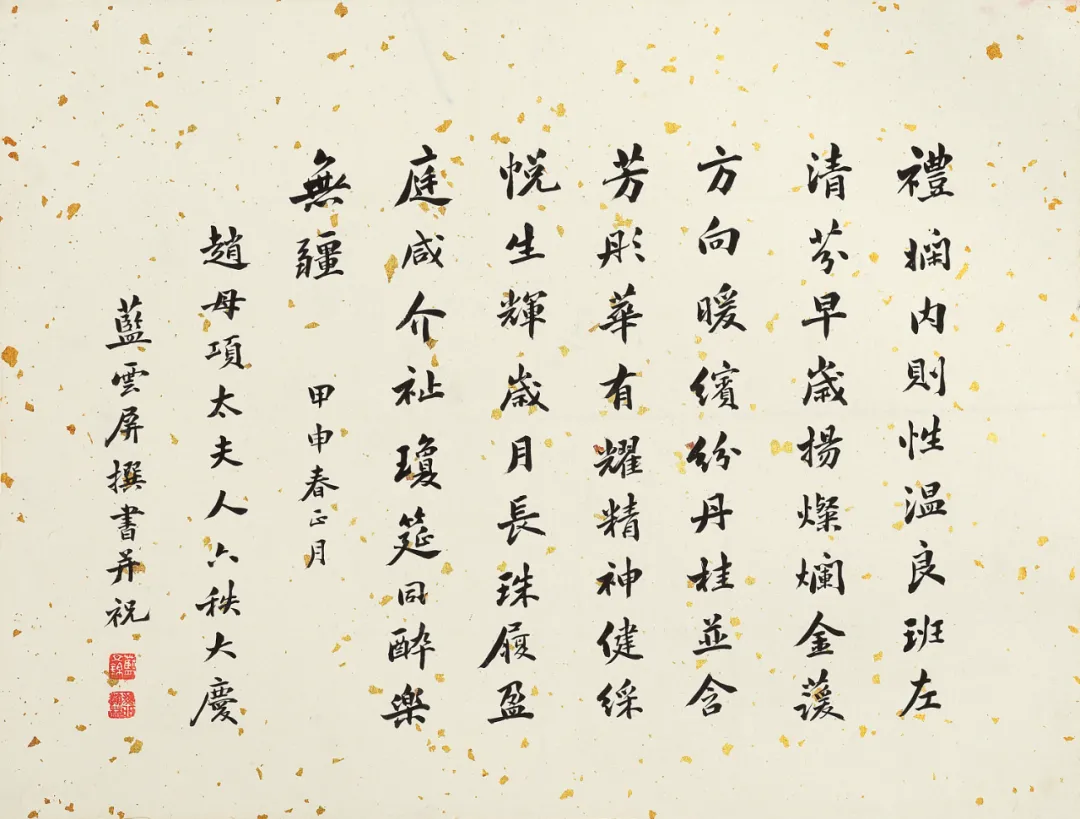 禮嫻內則性温良班左
清芬早歲揚燦爛金萲
方向暖繽紛丹桂並含
芳彤華有耀精神健綵
帨生輝歲月長珠履盈
庭咸介祉瓊筵同醉樂
無疆 甲申春正月
趙母項太夫人六秩大慶
藍雲屏撰書并祝